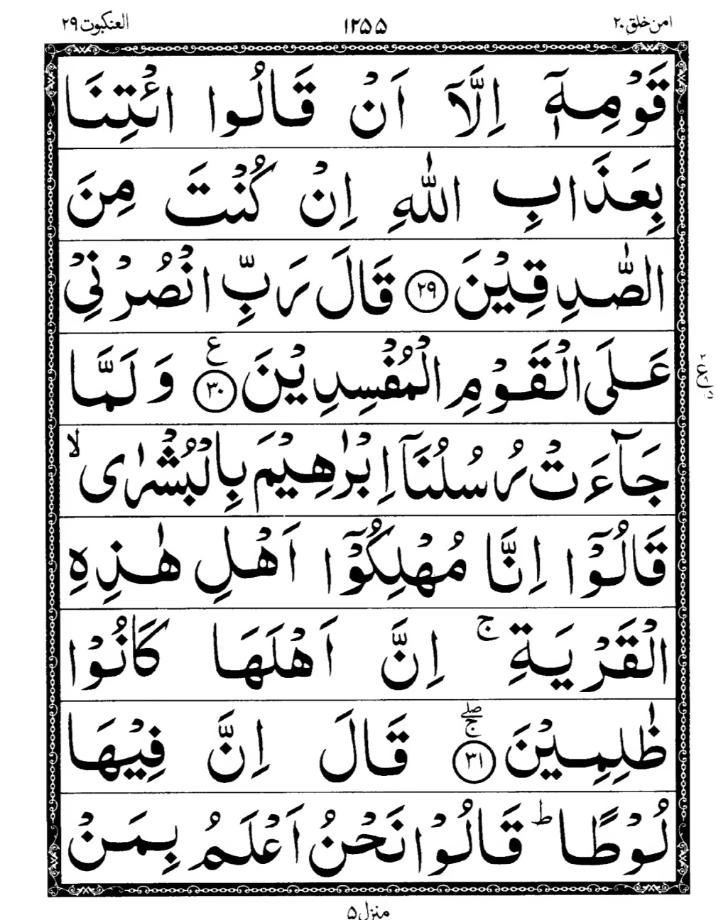 امن خلق ٢٠ ١٢٥٥ العنكبوت ٢٩
قَوْمِهٖۤ اِلَّاۤ اَنْ قَالُوا ائْتِنَا
بِعَذَابِ اللّٰهِ اِنْ كُنْتَ مِنَ
الصّٰدِقِيْنَ ۝٢٩ قَالَ رَبِّ انْصُرْنِيْ
عَلَى الْقَوْمِ الْمُفْسِدِيْنَ ۝٣٠ۧ وَ لَمَّا
جَآءَتْ رُسُلُنَاۤ اِبْرٰهِيْمَ بِالْبُشْرٰى ۙ
قَالُوْۤا اِنَّا مُهْلِكُوْۤا اَهْلِ هٰذِهِ
الْقَرْيَةِ ۚ اِنَّ اَهْلَهَا كَانُوْا
ظٰلِمِيْنَ ۝٣١ۖۚ قَالَ اِنَّ فِيْهَا
لُوْطًا ؕ قَالُوْا نَحْنُ اَعْلَمُ بِمَنْ
منزل ٥